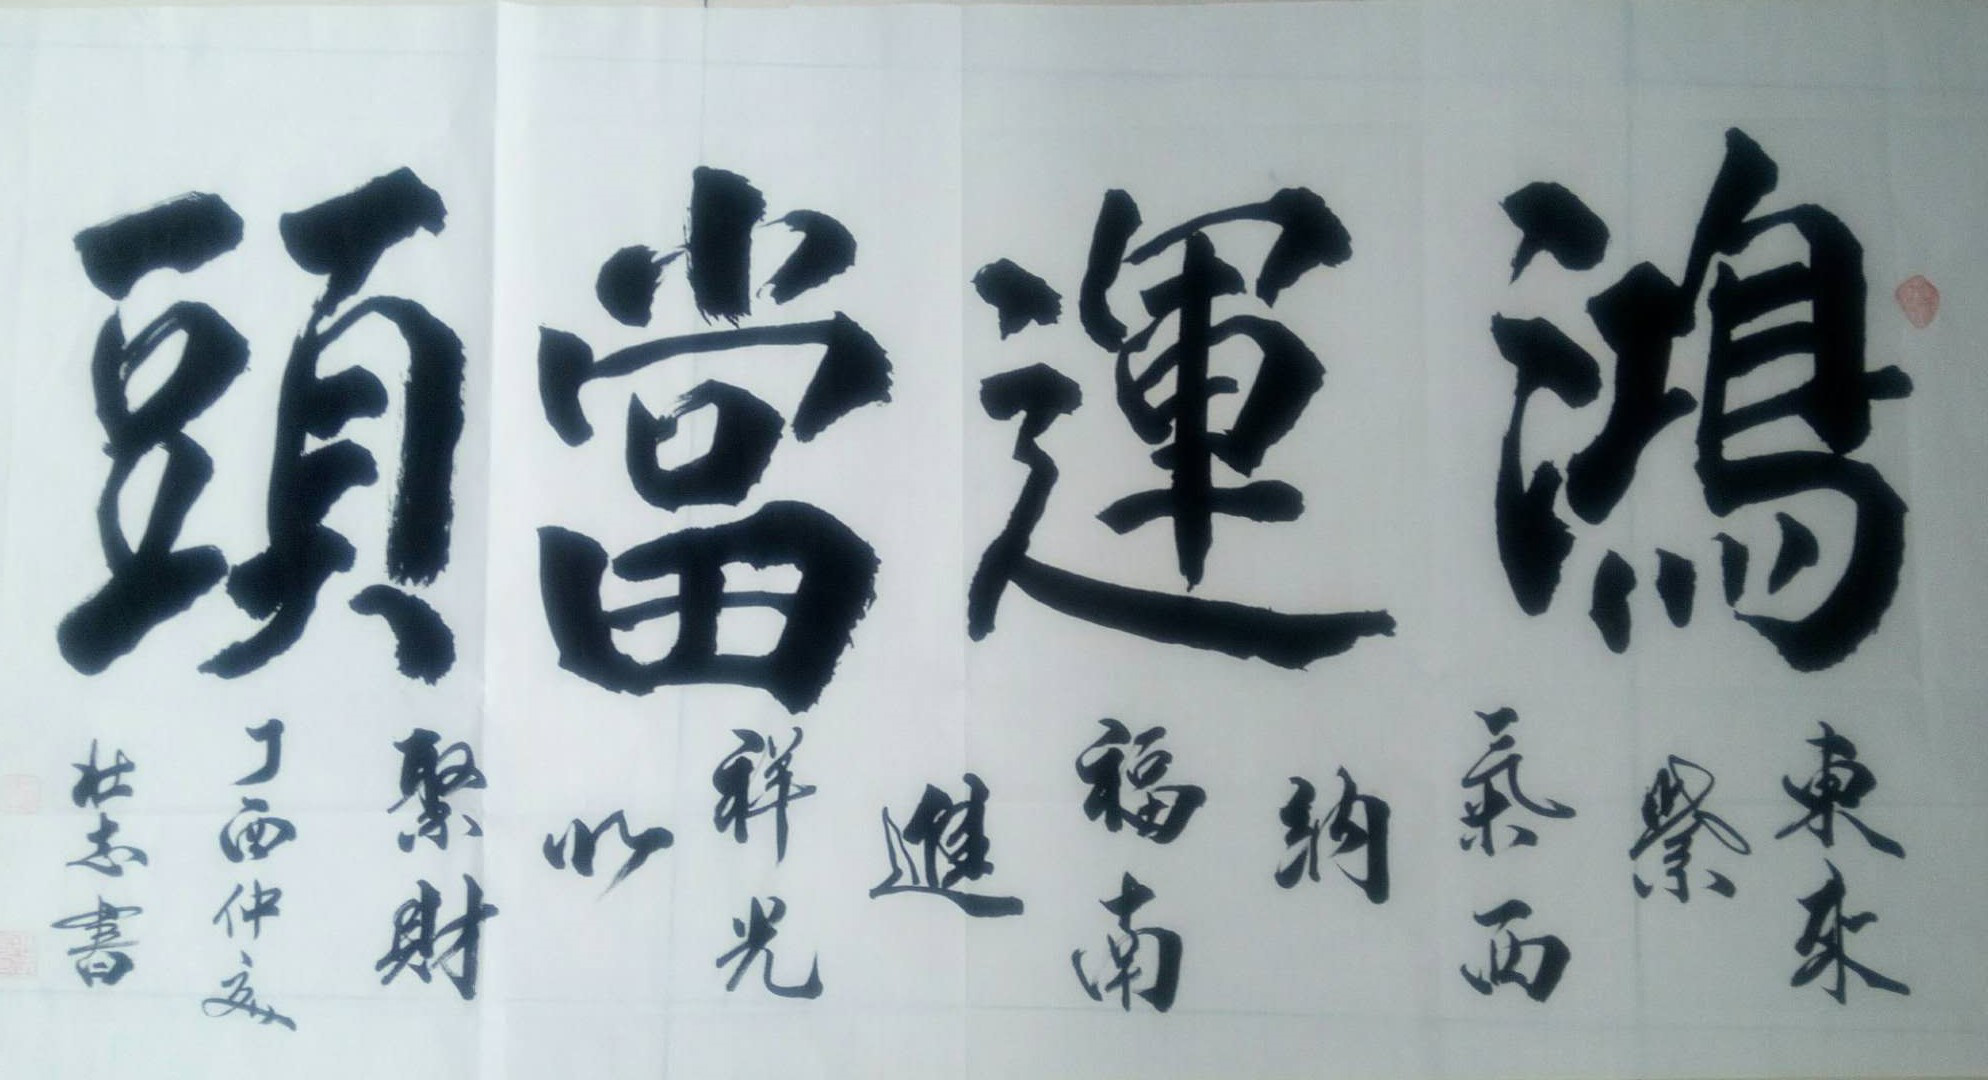 鴻運當頭
東來
紫
氣西
納
福南
進
祥光
北
聚財
丁酉仲夏
壮志書